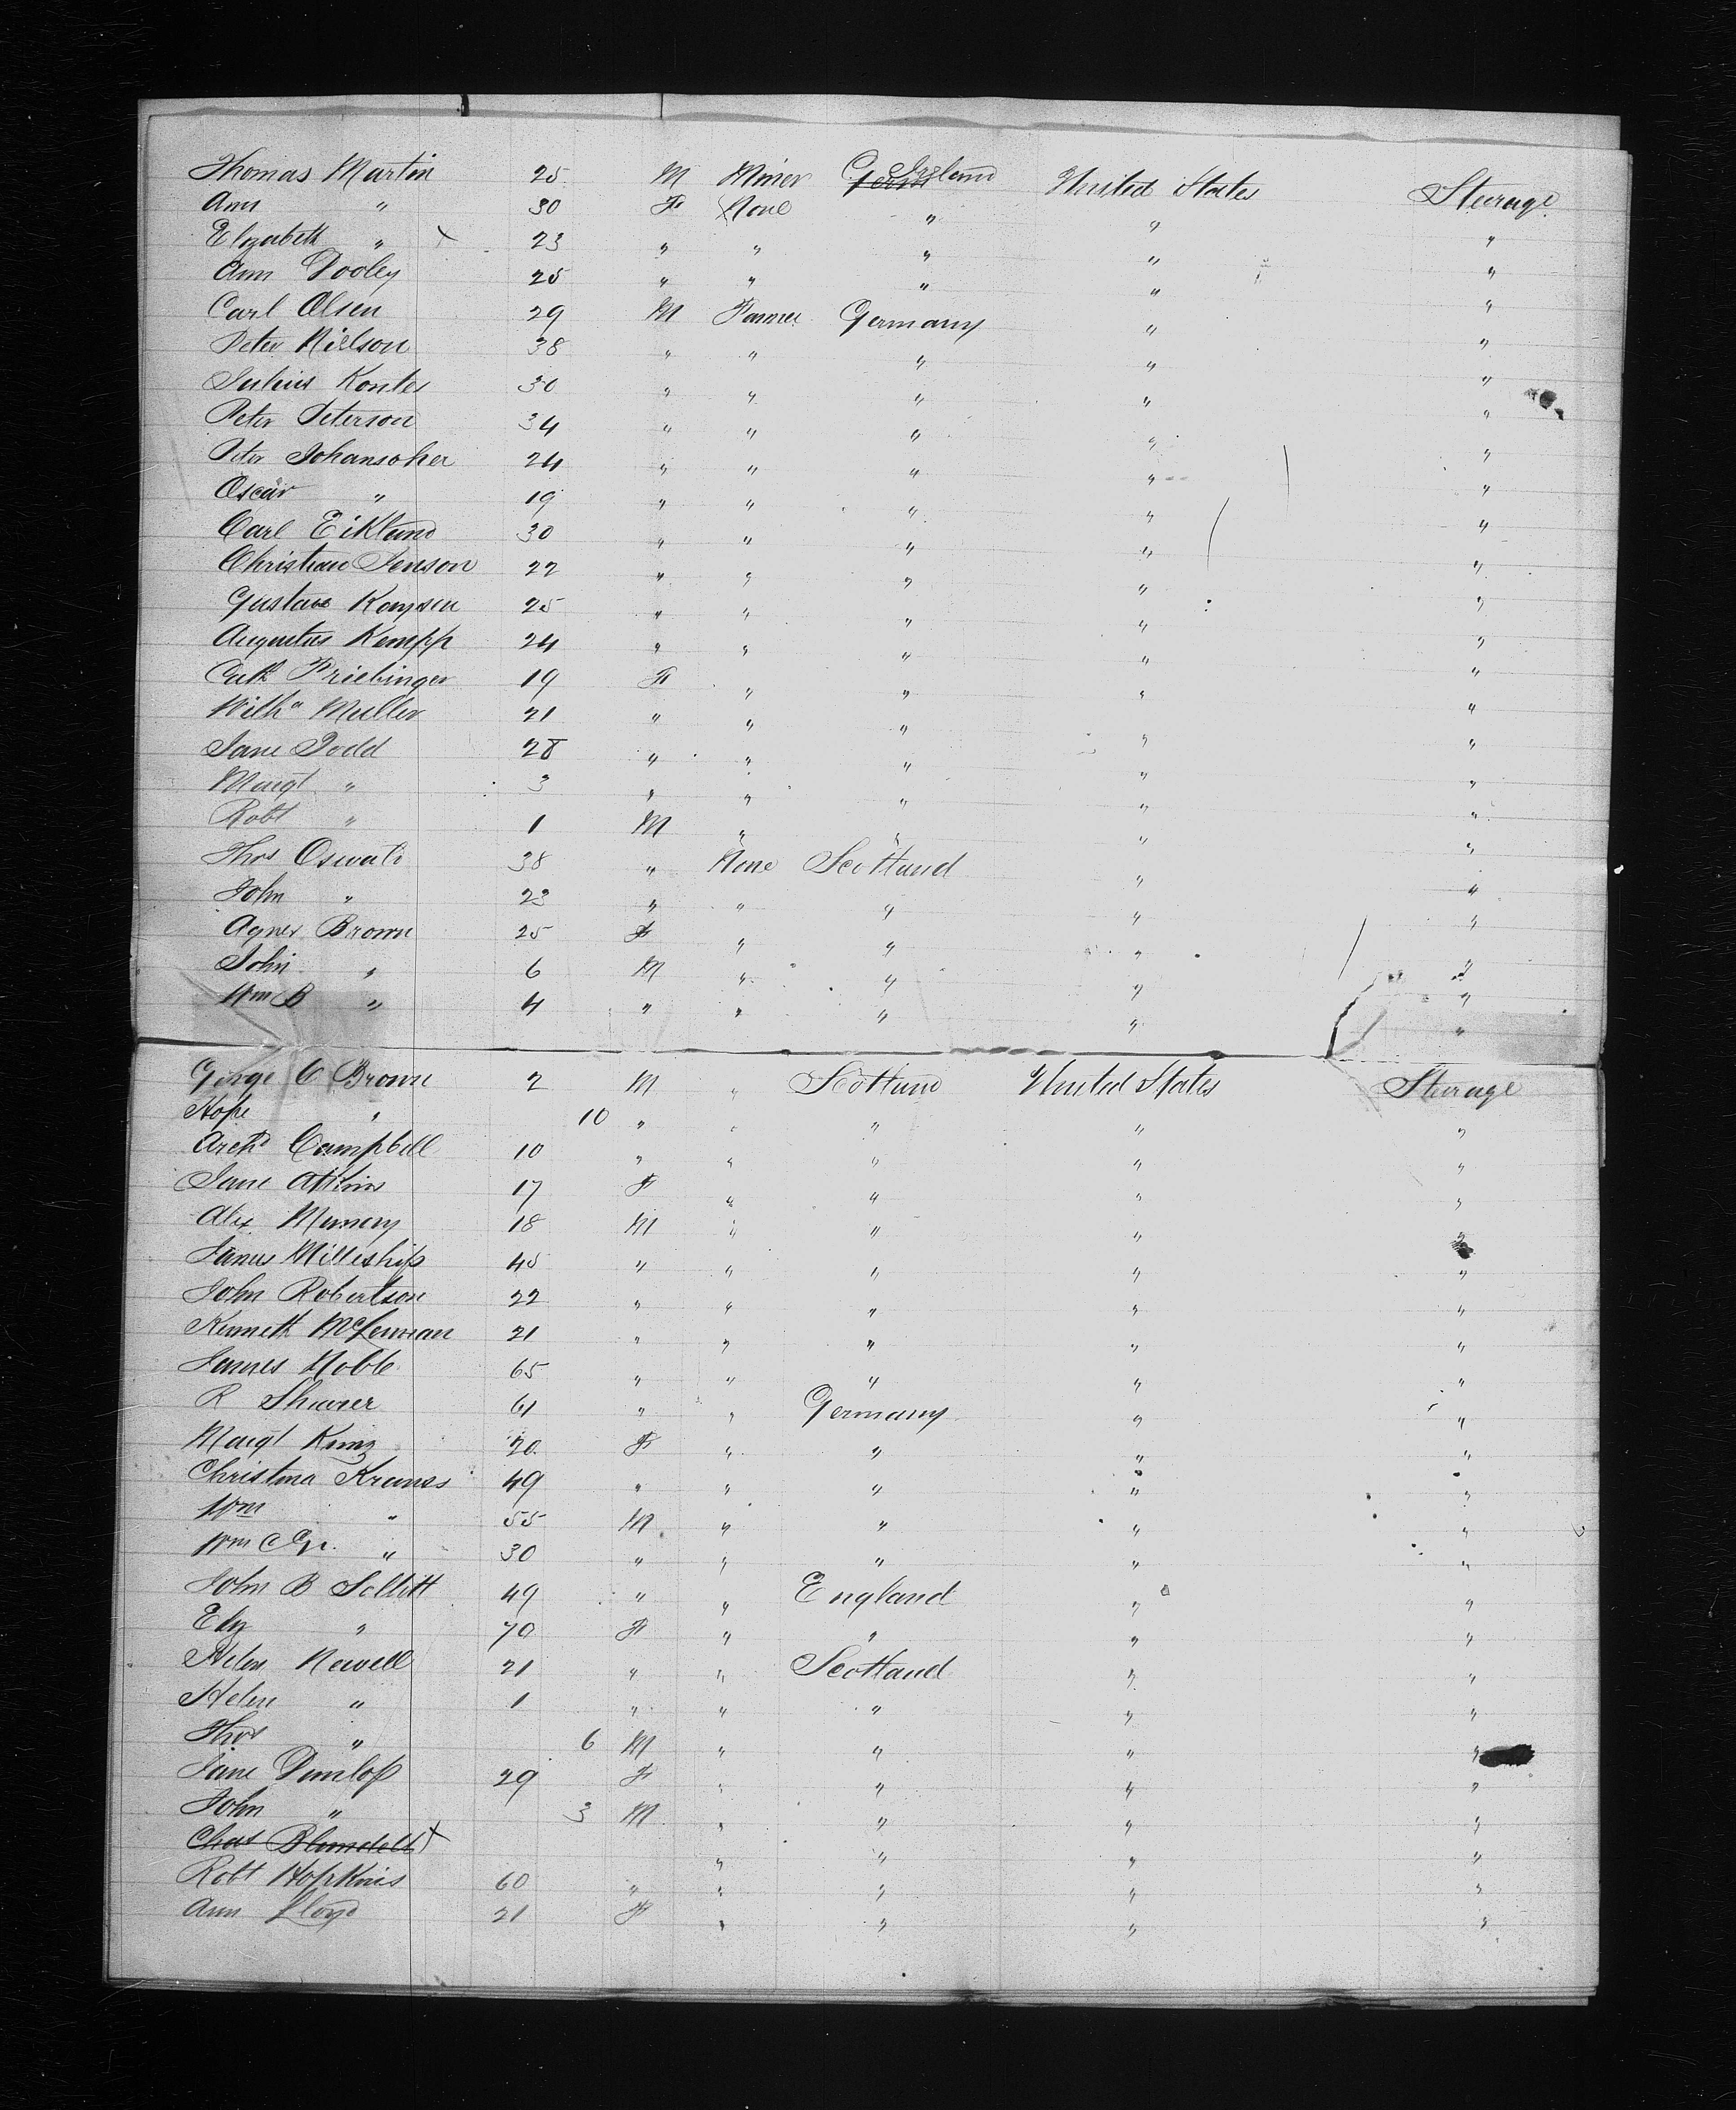 Thomas Martin 25 M Miner Ireland United States Steerage
Ann " 30 F None " " "
Elizabeth " X 23 " " " " "
Ann Dooley 25 " " " " "
Carl Olsen 29 M Farmer Germany " "
Peter Nielson 38 " " " " "
Julius Kontes 30 " " " " "
Peter Peterson 34 " " " " "
Peter Johansoher 24 " " " " "
Oscar " 19 " " " " "
Carl Eiklund 30 " " " " "
Christian Jenson 22 " " " " "
Gustave Kaysen 25 " " " " "
Augustus Kempp 24 " " " " "
Cath Friebinger 19 F " " " "
Wilha Muller 21 " " " " "
Jane Todd 28 " " " " "
Margt " 3 " " " " "
Robt " 1 M " " " "
Thos Oswald 38 " None Scotland " "
John " 23 " " " " "
Agnes Brown 25 F " " " "
John " 6 M " " " "
Wm B " 4 " " " " "
George C Brown 2 M " Scotland United States Steerage
Hope " 10 " " " " "
Archd Campbell 10 " " " " "
Jane Atkins 17 F " " " "
Alex Mumery 18 M " " " "
James Milleship 45 " " " " "
John Robertson 22 " " " " "
Kenneth McLennan 21 " " " " "
James Noble 65 " " " " "
R Shearer 61 " " Germany " "
Margt Kunz 20 F " " " "
Christina Krauss 49 " " " " "
Wm " 55 M " " " "
Wm " 30 " " " " "
John B Sollitt 49 " " England " "
Eliz " 70 F " " " "
Helen Newell 21 " " Scotland " "
Helen " 1 " " " " "
Thos " 6 M " " " "
Jane Dunlop 29 F " " " "
John " 3 M " " " "
Chas Blundell X " " " "
Robt Hopkins 60 " " " " "
Ann Lloyd 21 F " " " "